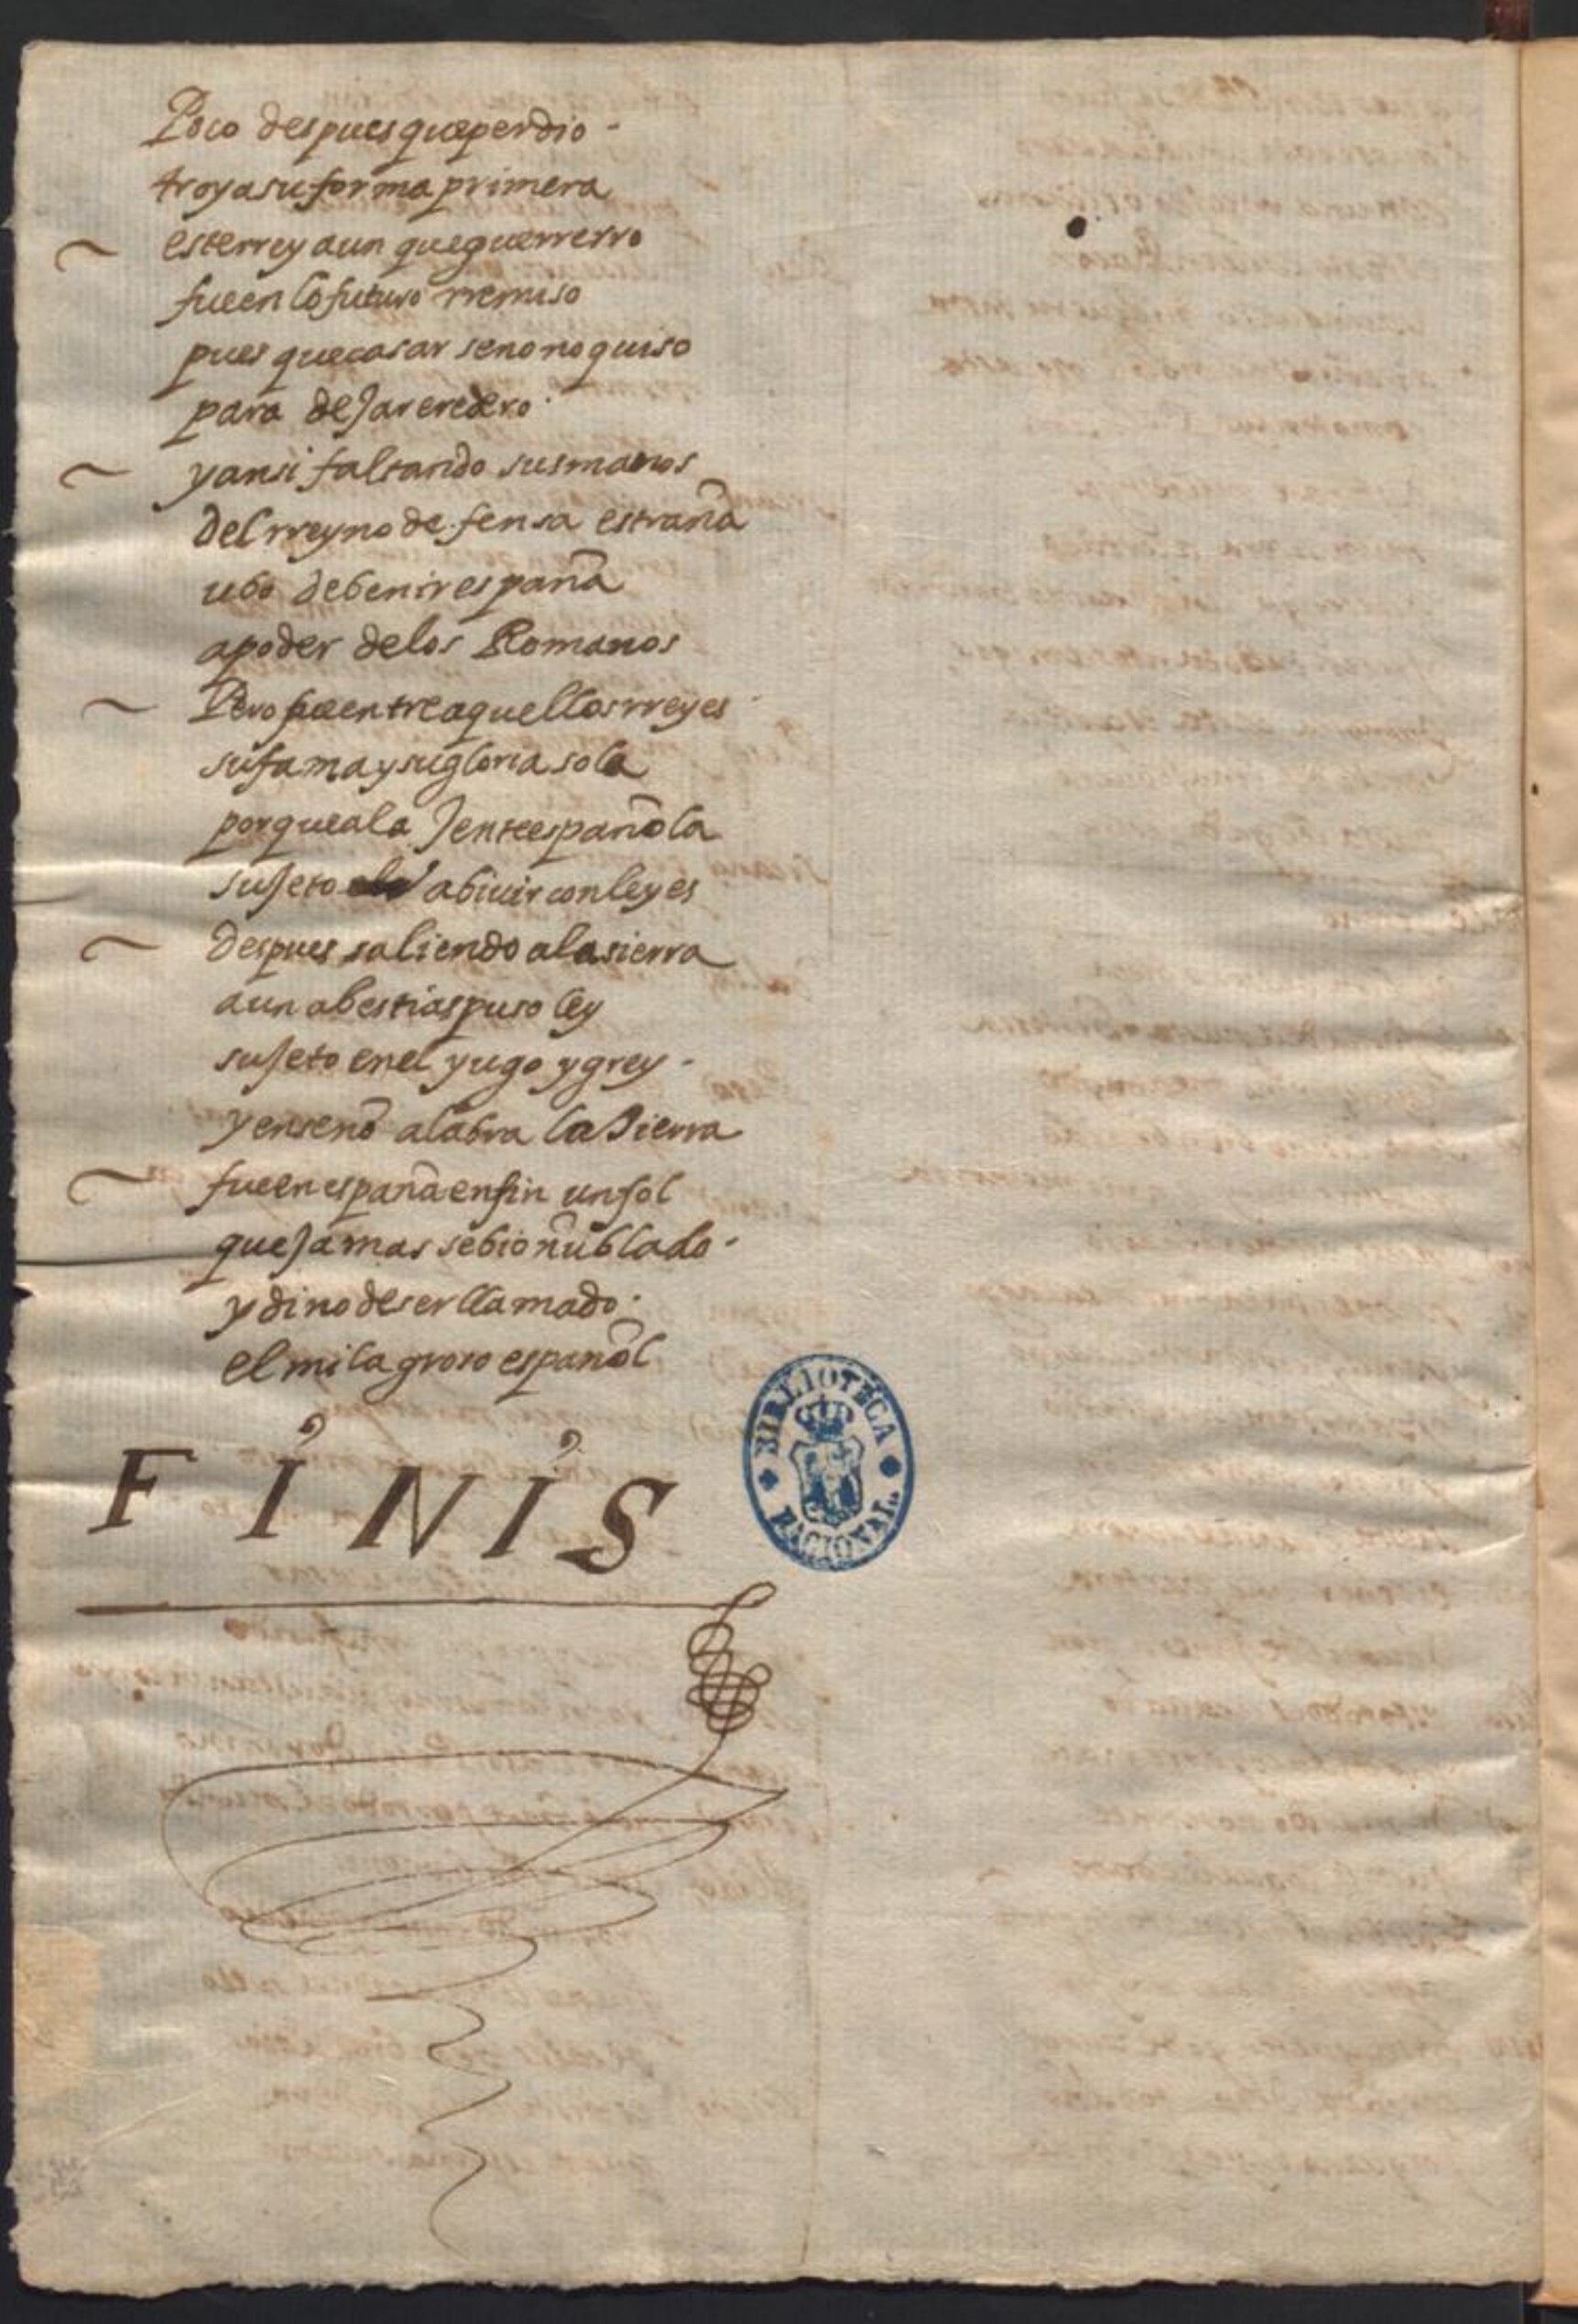 Poco despues que perdio
troya su forma primera
este rrey aun que guerrerro
fue en lo futuro rremiso
pues que casar se no no quiso
para deJar eredero
y ansi faltando sus manos
del rreyno defensa estraña
ubo de benir españa
a poder de los Romanos
Pero fue entre aquellos rreyes
su fama y su gloria sola
porque a la Jente española
suJeto a biuir con leyes
Despues saliendo a la sierra
aun a bestias puso ley
suJeto en el yugo y grey
y enseño a labra la tierra
fue en españa en fin un sol
que Jamas se bio ñublado
y dino de ser llamado
el milagroso español
FINIS
BIBLIOTECA NACIONAL